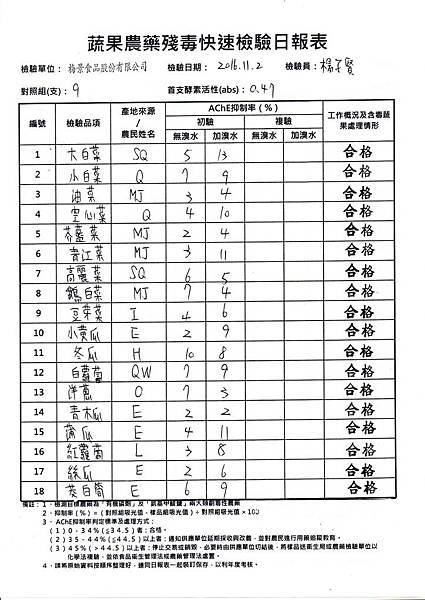 蔬果農藥殘毒快速檢驗日報表
檢驗單位： 裕景食品股份有限公司 檢驗日期： 2016.11.2 檢驗員： 楊子賢
對照組(支)： 9 首支酵素活性(abs)： 0.47
編號 檢驗品項 產地來源/農民姓名 AChE抑制率(%) 工作概況及含毒蔬果處理情形
初驗 複驗
無溴水 加溴水 無溴水 加溴水
1 大白菜 SQ 5 13 合格
2 小白菜 Q 7 9 合格
3 油菜 MJ 3 4 合格
4 空心菜 Q 4 10 合格
5 芥藍菜 MJ 2 4 合格
6 青江菜 MJ 3 11 合格
7 高麗菜 SQ 6 5 合格
8 鵝白菜 MJ 7 4 合格
9 豆芽菜 I 4 6 合格
10 小黃瓜 E 2 9 合格
11 冬瓜 H 10 8 合格
12 白蘿蔔 QW 7 9 合格
13 洋蔥 O 7 3 合格
14 青木瓜 E 2 2 合格
15 蒲瓜 E 4 11 合格
16 紅蘿蔔 L 3 8 合格
17 絲瓜 E 2 6 合格
18 茭白筍 E 6 9 合格
備註：1．檢測目標農藥為「有機磷劑」及「氨基甲酸鹽」兩大類劇毒性農藥
2．抑制率(%)＝(對照組吸光值－樣品組吸光值)÷對照組吸光值×100
3．AChE抑制率判定標準及處理方式：
(1) 0﹣34%(≦34.5)者：合格。
(2) 35﹣44%(≦44.5)以上者：通知供應單位延期採收與改善，並對農民進行用藥追蹤教育。
(3) 45%(＞44.5)以上者：停止交易或銷毀，必要時由供應單位切結後，將樣品送衛生局或農藥檢驗單位以
化學法複驗，並依食品衛生管理法或農藥管理法處置。
4．請將原始資料按順序整理好，連同日報表一起裝訂保存，以利年度考核。